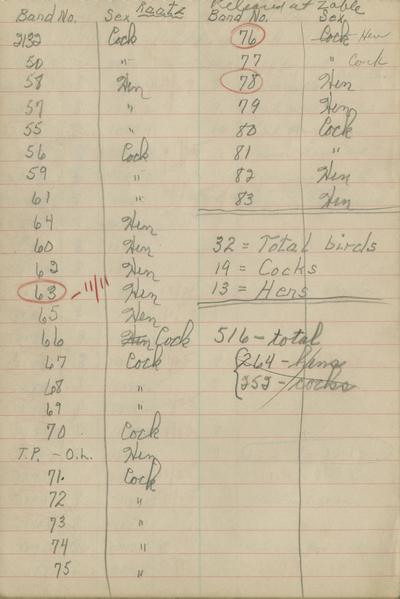 Band No. Sex Raatz
2132 Cock
50 "
58 Hen
57 "
55 "
56 Cock
59 "
61 "
64 Hen
60 Hen
62 Hen
63 - 11/11 Hen
65 Hen
66 Hen Cock
67 Cock
68 "
69 "
70 Cock
T.P. - O.L. Hen
71. Cock
72 "
73 "
74 "
75 "
Released at Zable
Band No. Sex
76 Cock Hen
77 " Cock
78 Hen
79 Hen
80 Cock
81 "
82 Hen
83 Hen
32 = Total birds
19 = Cocks
13 = Hens
516 - total
264 - hens
252 - cocks